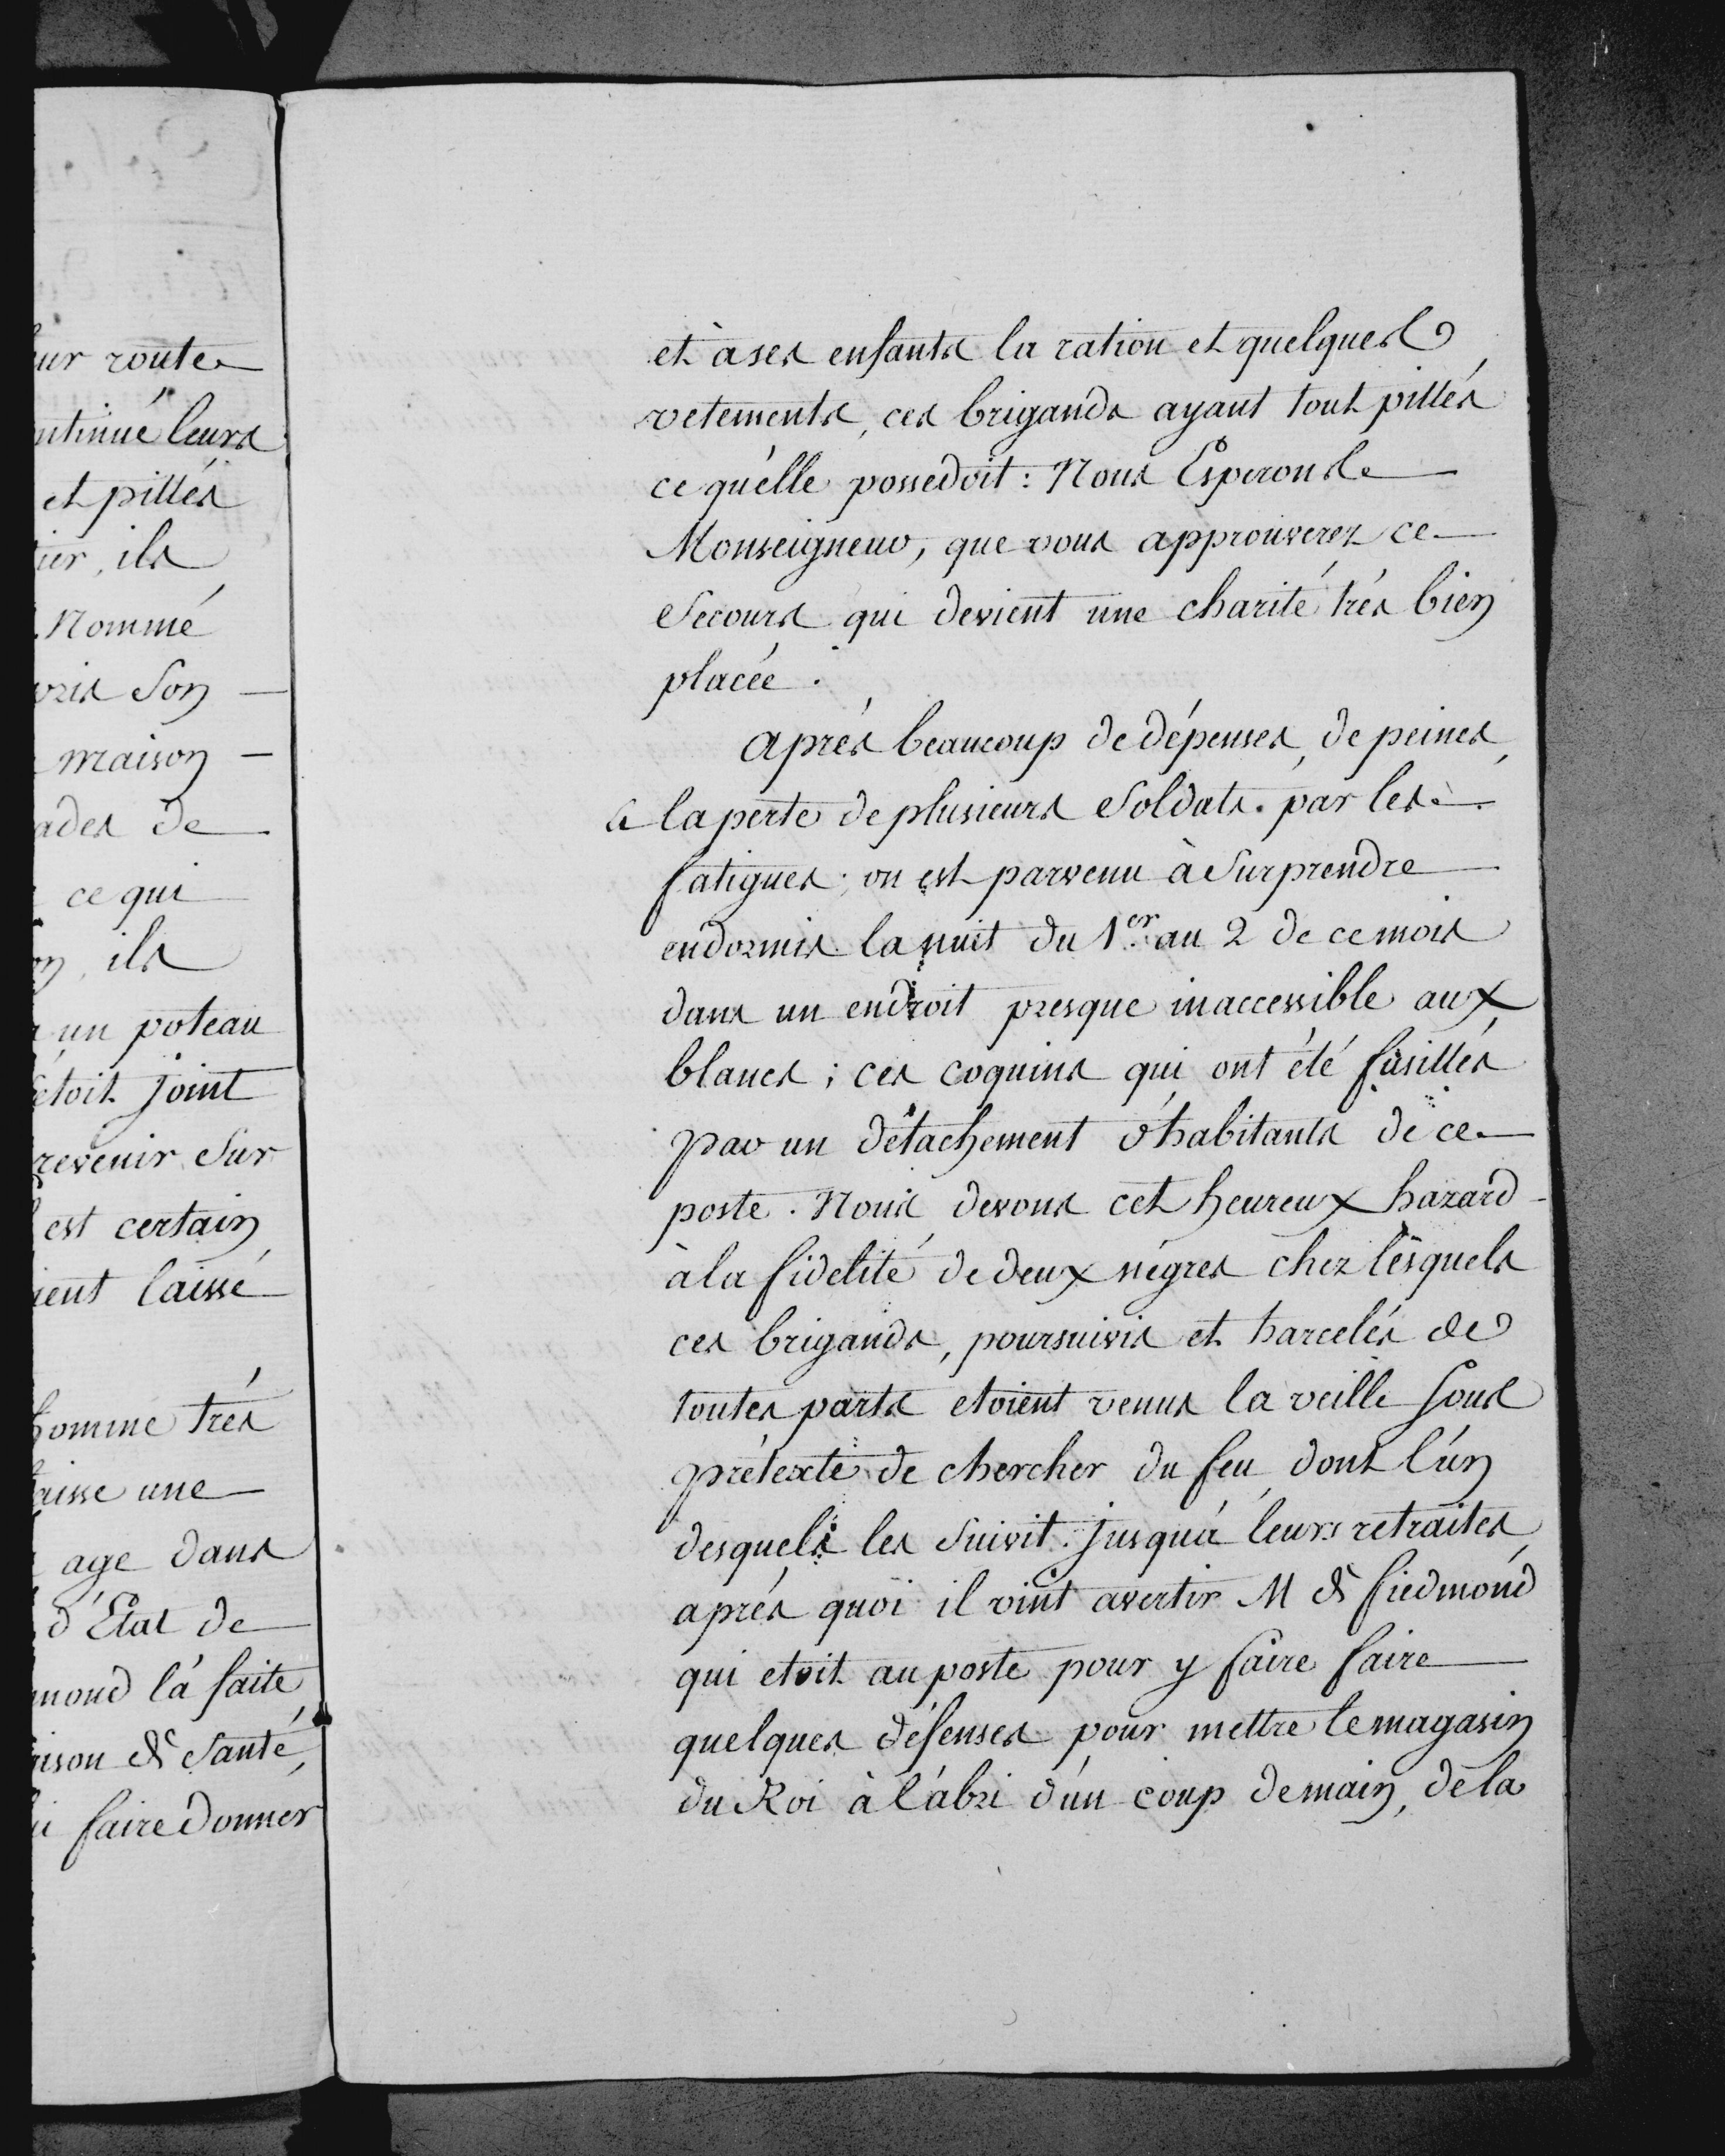 ur route
ntinué leurs
et pillés
ier, ils
Nommé
pris Son
maison
ades de
ce qui
on, ils
un poteau
étoit Joint
revenir Sur
est certain
ient laissé
homme trés
aisse une
age dans
d'Etat de
mond l'a faite
aison de Santé,
i faire donner
et à ses enfants la ration et quelques
vetements, ces brigands ayant tout pillés
ce qu'elle possedoit : Nous Esperons
Monseigneur, que vous approuverez ce
Secours qui devient une charité trés bien
placée.
après beaucoup de dépenses, de peines,
& la perte de plusieurs Soldats. par les
fatigues; on est parvenu à Surprendre
endormis la nuit du 1er. au 2 de ce mois
dans un endroit presque inaccessible aux
blancs ; ces coquins qui ont été fusillés
par un détachement d'habitants de ce
poste. Nous devons cet heureux hazard
à la fidelité de deux négres chez lesquels
ces brigands, poursuivis et harcelés de
toutes parts etoient venus la veille Sous
prétexte de chercher du feu, dont l'un
desquels les Suivit. Jusqu'à leurs retraites,
aprés quoi il vint avertir M de fiedmond
qui etoit au poste pour y faire faire
quelques défenses pour mettre le magasin
du Roi à l'abri d'un coup de main, de la